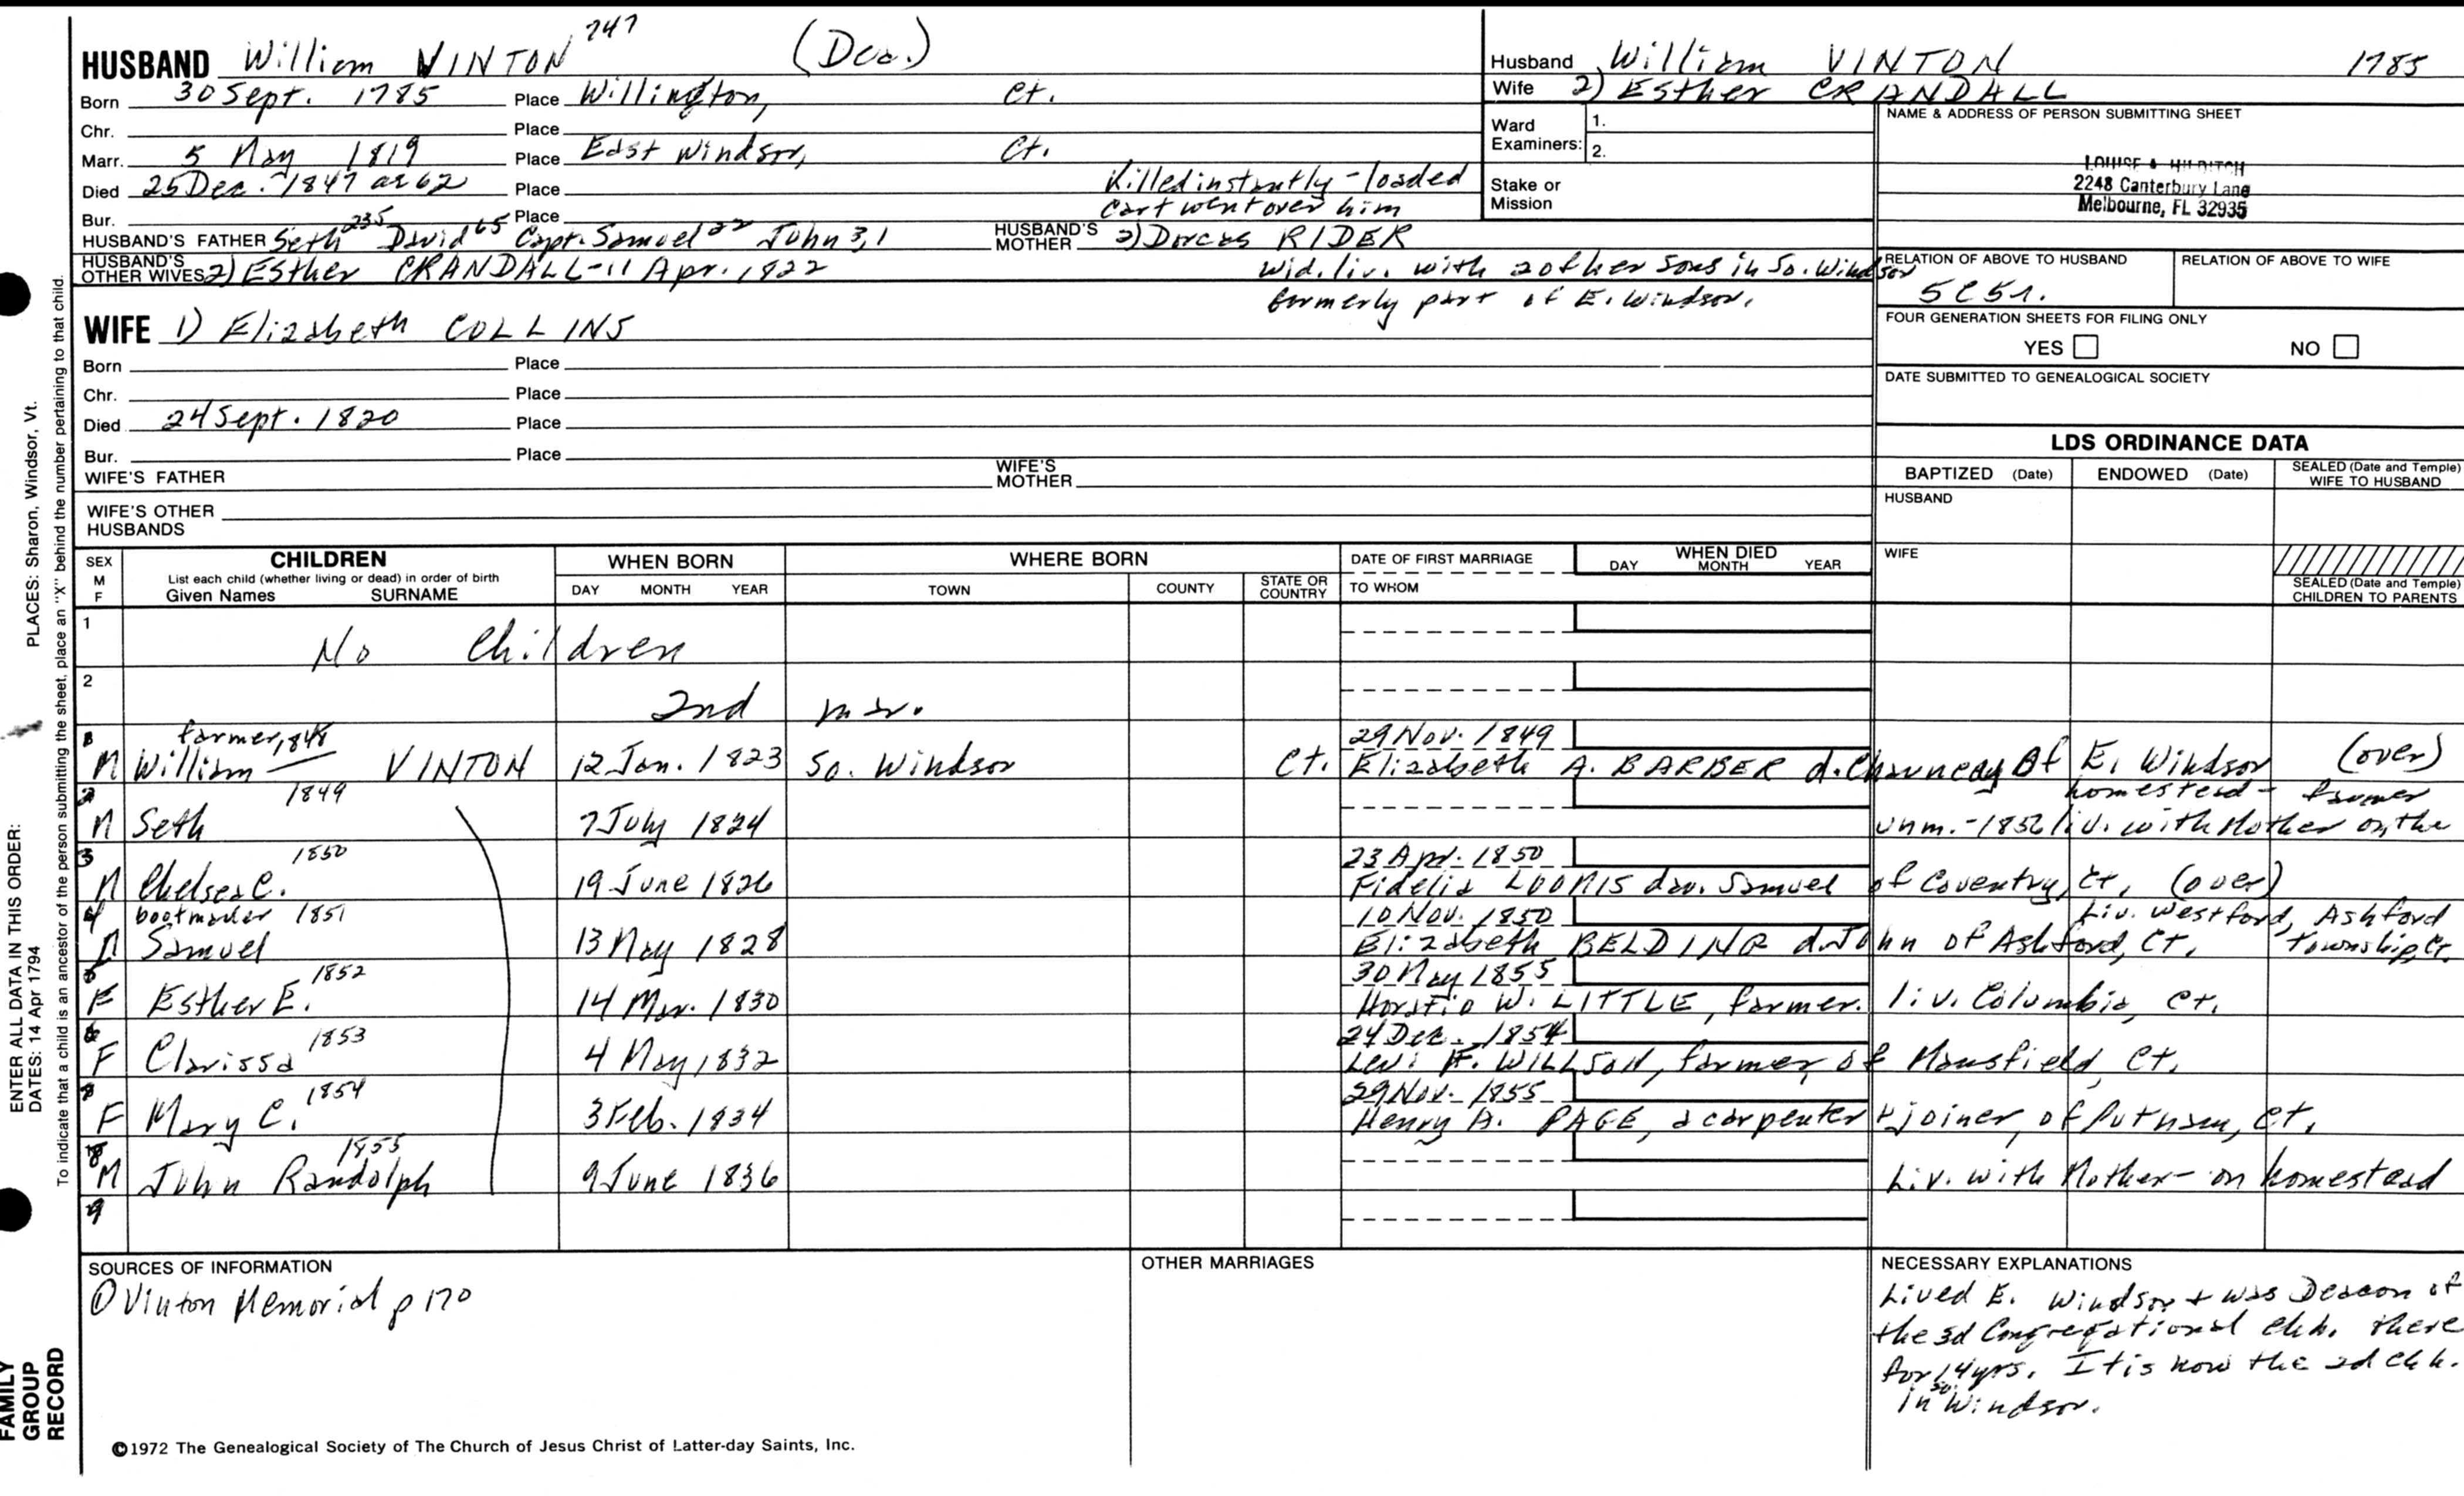 HUSBAND William VINTON 747 (Dea.)
Born 30 Sept. 1785 Place Willington, Ct.
Chr. Place
Marr. 5 May 1819 Place East Windsor, Ct.
Died 25 Dec. 1847 ae 62 Place Killed instantly - loaded
cart went over him
Bur. Place
HUSBAND'S FATHER Seth 235 David 65 Capt. Samuel 22 John 3,1 HUSBAND'S MOTHER 2) Dorcas RIDER
HUSBAND'S OTHER WIVES 2) Esther CRANDALL - 11 Apr. 1822 Wid. liv. with 2 of her sons in So. Windsor
formerly part of E. Windsor.
WIFE 1) Elizabeth COLLINS
Born Place
Chr. Place
Died 24 Sept. 1820 Place
Bur. Place
WIFE'S FATHER WIFE'S MOTHER
WIFE'S OTHER HUSBANDS
Husband William VINTON 1785
Wife 2) Esther CRANDALL
Ward Examiners: 1.
2.
Stake or Mission
NAME & ADDRESS OF PERSON SUBMITTING SHEET
LOUISE A HILDITCH
2248 Canterbury Lane
Melbourne, FL 32935
RELATION OF ABOVE TO HUSBAND RELATION OF ABOVE TO WIFE
FOUR GENERATION SHEETS FOR FILING ONLY
YES NO
DATE SUBMITTED TO GENEALOGICAL SOCIETY
LDS ORDINANCE DATA
BAPTIZED (Date) ENDOWED (Date) SEALED (Date and Temple) WIFE TO HUSBAND
HUSBAND
WIFE
SEALED (Date and Temple) CHILDREN TO PARENTS
SEX M F CHILDREN List each child (whether living or dead) in order of birth Given Names SURNAME
WHEN BORN DAY MONTH YEAR
WHERE BORN TOWN COUNTY STATE OR COUNTRY
DATE OF FIRST MARRIAGE TO WHOM
WHEN DIED DAY MONTH YEAR
1 No Children
2 2nd mar.
farmer, 1848 29 Nov. 1849
M William VINTON 12 Jan. 1823 So. Windsor Ct. Elizabeth A. BARBER d. Chauncey of E. Windsor (over)
2 1849 homestead - farmer
M Seth 7 July 1824 unm. - 1856 liv. with Mother on the
3 1850 23 Apr. 1850
M Chelsea C. 19 June 1826 Fidelia LOOMIS dau. Samuel of Coventry, Ct. (over)
4 bootmaker 1851 10 Nov. 1850 Liv. Westford, Ashford
M Samuel 13 May 1828 Elizabeth BELDING d. John of Ashford, Ct. Township, Ct.
5 1852 30 May 1855
F Esther E. 14 Mar. 1830 Horatio W. LITTLE, farmer. liv. Columbia, Ct.
6 1853 24 Dec. 1854
F Clarissa 4 May, 1832 Levi F. WILLSON, farmer, of Mansfield, Ct.
1854 29 Nov. 1855
F Mary C. 3 Feb. 1834 Henry A. PAGE, a carpenter & joiner, of Putnam, Ct.
8 1855
M John Randolph 9 June 1836 Liv. with Mother - on homestead
9
SOURCES OF INFORMATION
① Vinton Memorial p 170
OTHER MARRIAGES
NECESSARY EXPLANATIONS
Lived E. Windsor & was Deacon of
the 3d Congregational chh. there
for 14 yrs. It is now the 2d chh.
in So. Windsor.
©1972 The Genealogical Society of The Church of Jesus Christ of Latter-day Saints, Inc.
PLACES: Sharon, Windsor, Vt.
ENTER ALL DATA IN THIS ORDER:
DATES: 14 Apr 1794
To indicate that a child is an ancestor of the person submitting the sheet, place an "X" behind the number pertaining to that child.
FAMILY
GROUP
RECORD